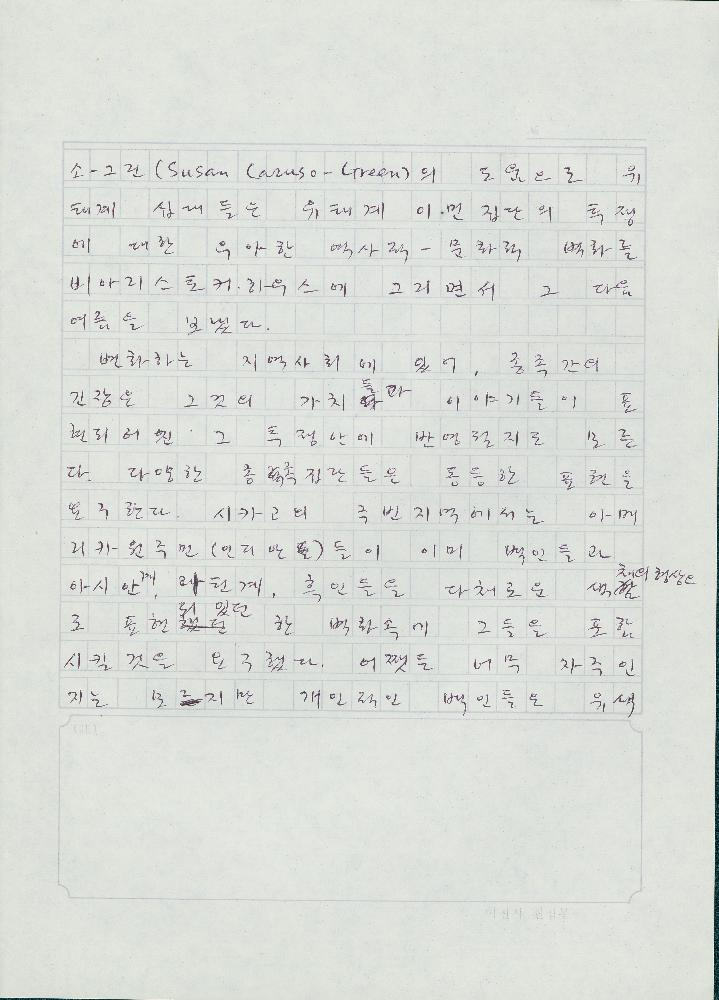 소-그린 (Susan Caruso-Green)의 도움으로 유
태계 십대들은 유태계 이민 집단의 특정
에 대한 우아한 역사적-문화적 벽화를
비아리스토커·하우스에 그리면서 그 다음
여름을 보냈다.
변화하는 지역사회에 있어, 종족간의
긴장은 그것의 가치들과 이야기들이 표
현되어진 그 특정안에 반영될지도 모른
다. 다양한 종족집단들은 동등한 표현을
요구한다. 시카고의 주변지역에서는 아메
리카·원주민(인디안)들이 이미 백인들과
아시안계, 라틴계, 흑인들을 다채로운 색채의 형상으
로 표현되 있던 한 벽화속에 그들을 포함
시킬 것을 요구했다. 어쨋든 너무 자주인
지는 모르지만 개인적인 백인들은 유색